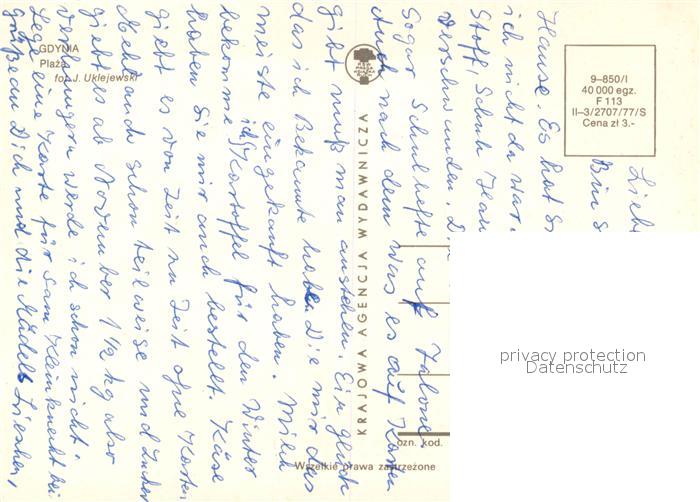 GDYNIA
Plaża
fot. J. Uklejewski
KRAJOWA AGENCJA WYDAWNICZA
9-850/I
40 000 egz.
F 113
II-3/2707/77/S
Cena zł 3.-
ozn. kod.
Wszelkie prawa zastrzeżone
privacy protection
Datenschutz
Lieb
Bin s
Hause. Es hat S
ich nicht da war.
Stoff, Schuh Han
verschwunden.
Sogar Schulhefte auf Talone.
Auch nach dem was es auf Karten
gibt muß man anstehen. Ein glück
das ich Bekannte habe. Die mir das
meiste eingekauft haben. Milch
bekomme ich, Kartoffel für den Winter
haben Sie mir auch bestellt. Käse
giebt es von Zeit zu Zeit ohne Karten
Mehl auch schon teilweise und Zucker
giebt ab November 1½ kg also
verhungern werde ich schon nicht.
Lege eine Karte für Sam Kleinknecht bei
grüßen Dich und die Mädels Lieschen,